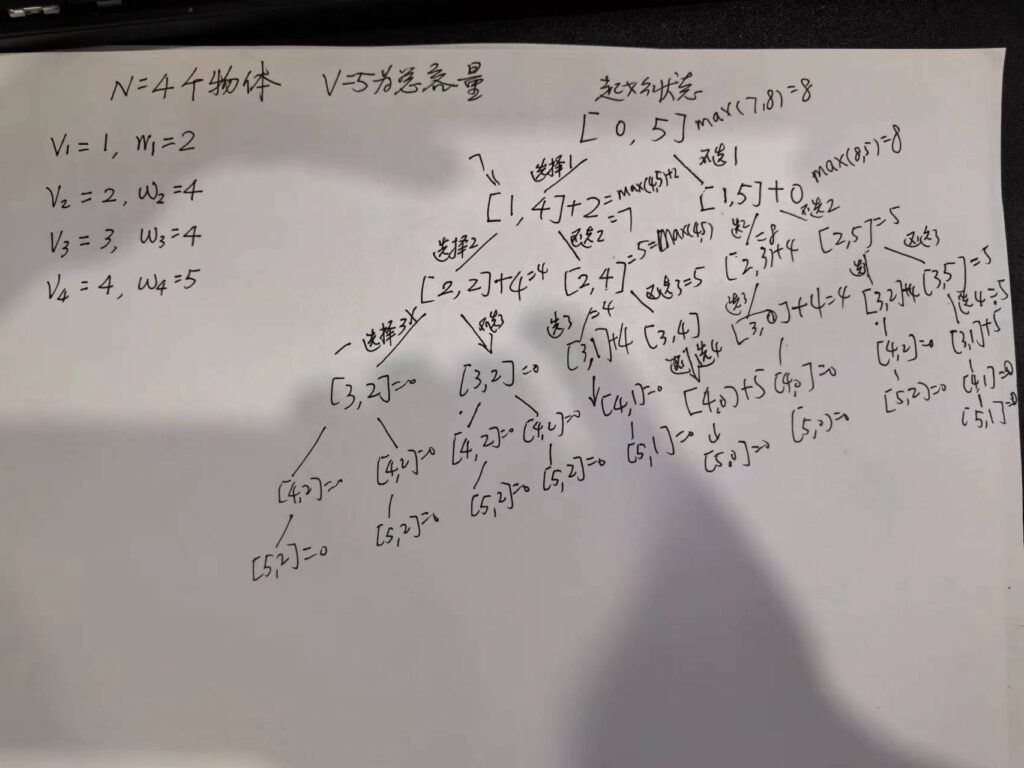 N=4个物体 V=5为总容量 起始状态
[0,5] max(7,8)=8
V1=1, w1=2
V2=2, w2=4
V3=3, w3=4
V4=4, w4=5
7 选择1 不选1
[1,4]+2=max(4,5)+2=7 [1,5]+0 max(8,5)=8
选择2 不选2 选2 不选2
[2,2]+4=4 [2,4]=5=max(4,5) [2,3]+4=8 [2,5]=5
选择3× 不选3 选3 不选3=5 选3 不选3
[3,2]=0 [3,2]=0 [3,1]+4=4 [3,4] [3,0]+4=4 [3,2]+4 [3,5]=5
选4 选4=5
[4,2]=0 [4,2]=0 [4,2]=0 [4,2]=0 [4,1]=0 [4,0)+5 [4,0]=0 [4,2]=0 [3,1]+5
[4,1]=0
[5,2]=0 [5,2]=0 [5,2]=0 [5,2]=0 [5,1]=0 [5,0]=0 [5,0)=0 [5,2]=0 [5,1]=0